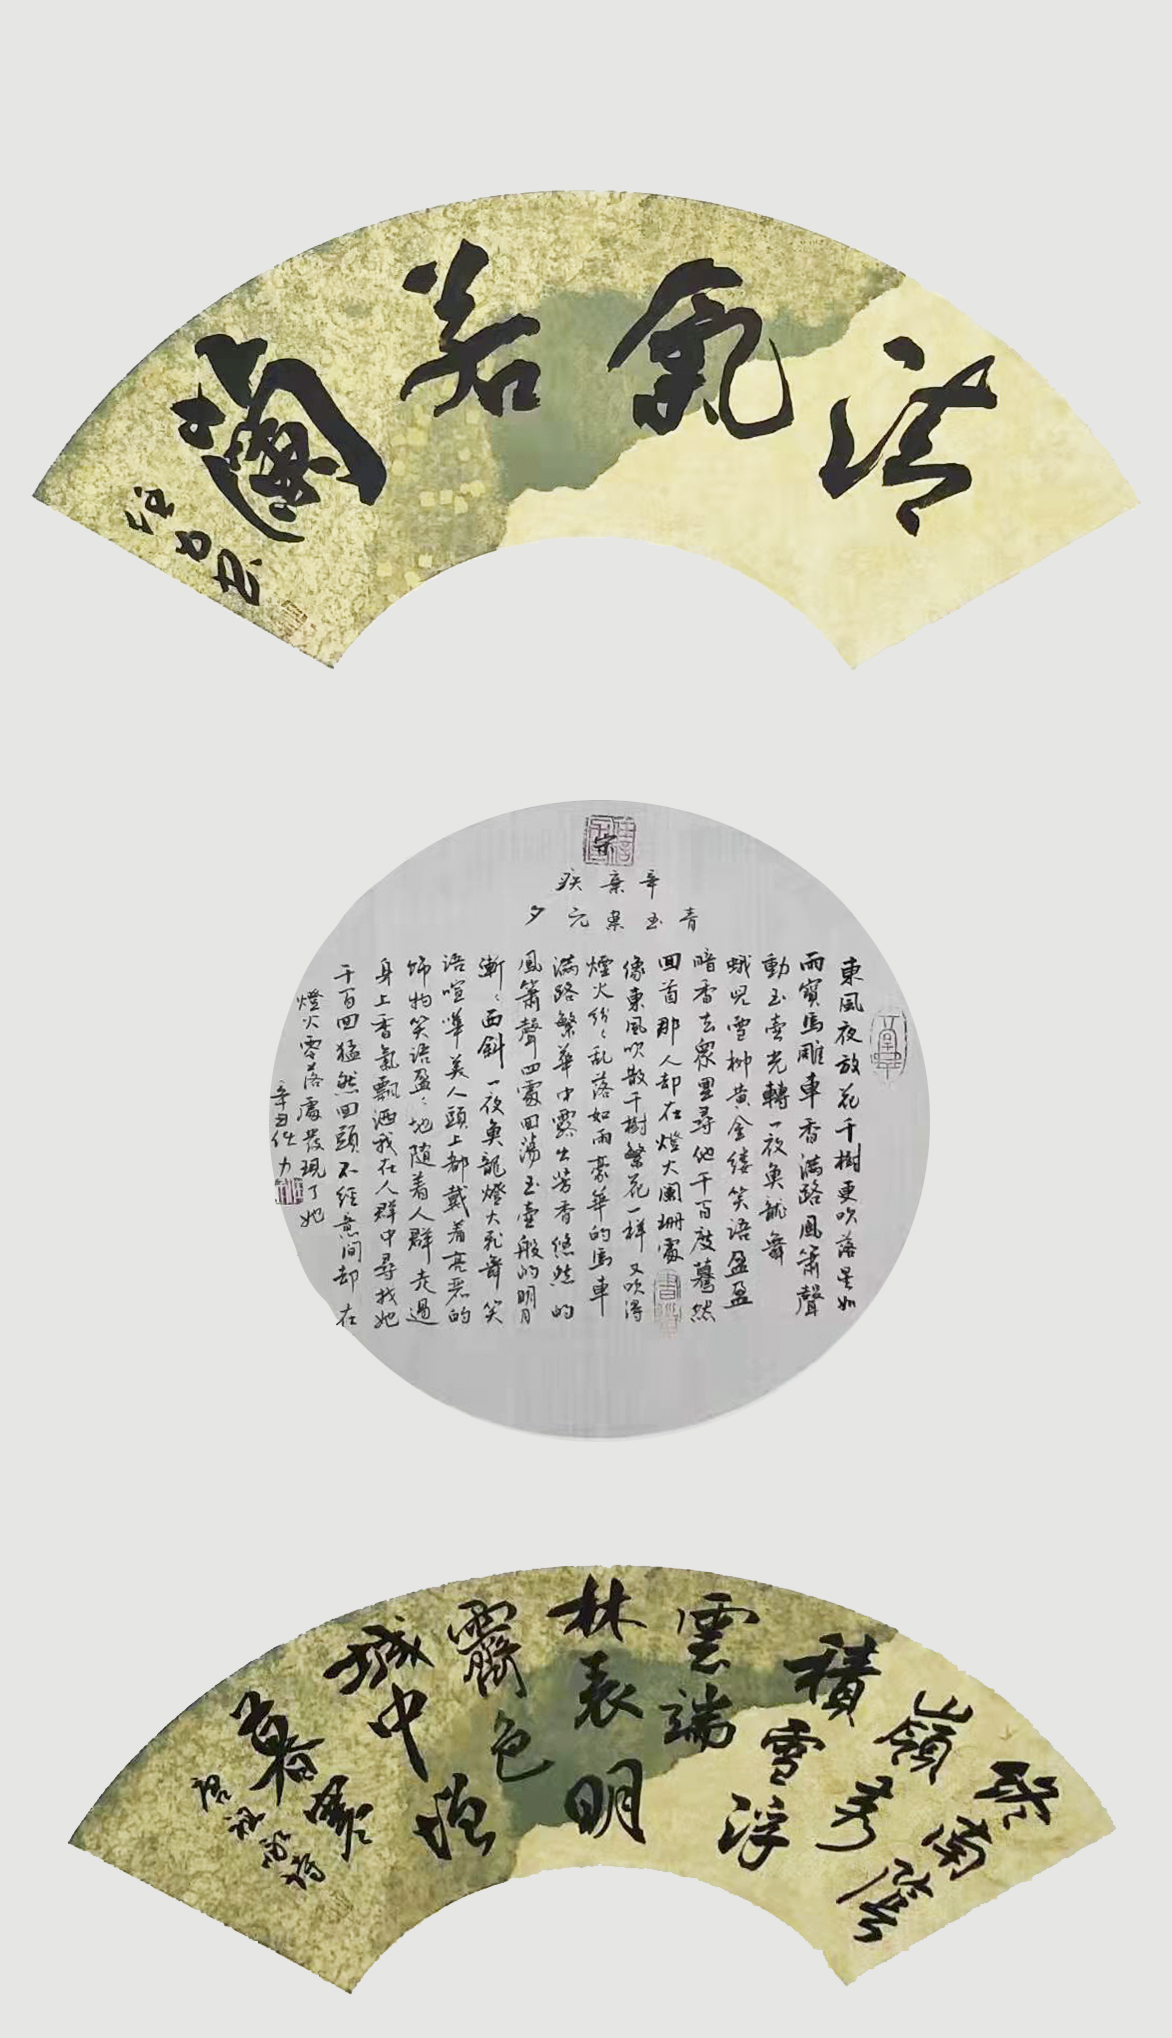 清氣若蘭
辛棄疾
青玉案元夕
東風夜放花千樹更吹落星如
雨寶馬雕車香滿路鳳簫聲
動玉壺光轉一夜魚龍舞
蛾兒雪柳黃金縷笑語盈盈
暗香去眾里尋他千百度驀然
回首那人却在燈火闌珊處
像東風吹散千樹繁花一样又吹得
煙火紛〻乱落如雨豪華的馬車
滿路繁華中露出芳香悠然的
鳳簫聲四處回蕩玉壺般的明月
漸〻西斜一夜魚龍燈火飛舞笑
語喧嘩美人頭上都戴着亮丽的
饰物笑語盈〻地随着人群走過
身上香氣飄洒我在人群中尋找她
千百回猛然回頭不經意间却在
燈火零落處發現了她
辛丑任力
終南陰
嶺秀
積雪浮
雲端
林表明
霽色
城中增
暮寒
唐祖詠詩